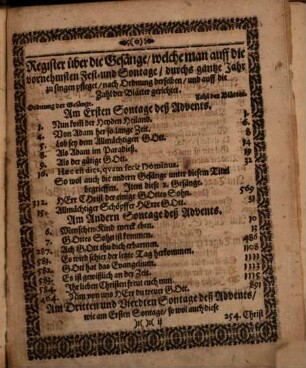 Register über die Gesänge / welche man auff die
vornehmsten Fest- und Sontage / durchs gantze Jahr
zu singen pfleget / nach Ordnung derselben / und auff die
Zahl der Blätter gerichtet.
Ordnung der Gesänge. Zahl der Blätter.
Am Ersten Sontage deß Advents.
1. Nun kom̃ der Heyden Heiland.
2. Von Adam her so lange Zeit.
Lob sey dem Allmächtigen GOtt.
Als Adam im Paradieß.
8. Als der gütige GOtt.
10. Hæc est dies, quam fecit Dominus.
So wol auch die andere Gesänge unter diesem Titul
begriffen. Item diese 2. Gesänge.
312. HErr Christ der einige GOttes Sohn. 569
Allmächtiger Schöpffer HErre GOtt.
Am Andern Sontage deß Advents.
6. Menschen Kind merck eben. 10
7. GOttes Sohn ist kommen.
287. Ach GOtt thu dich erbarmen. 486
Es wird schier der letzte Tag herkommen.
582. GOtt hat das Evangelium.
Es ist gewißlich an der Zeit.
Ihr lieben Christen freut euch nun
464. Nim von uns HErr du treuer GOtt. 891
Am Dritten und Vierdten Sontage deß Advents /
wie am Ersten Sontage / so wol auch diese
ij 254. Christ